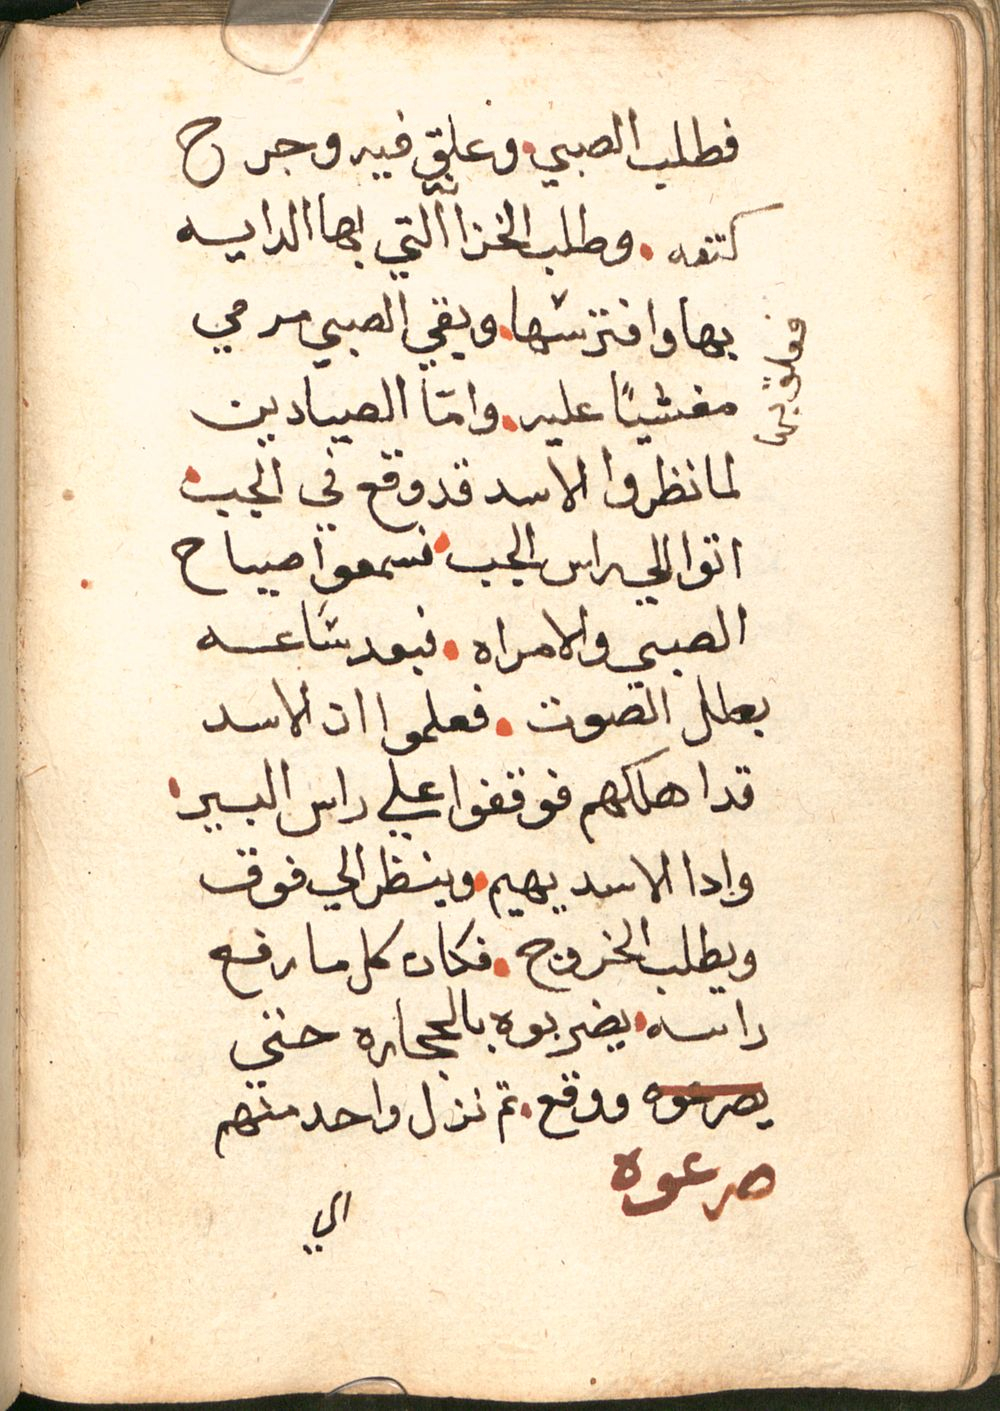 فطلب الصبي وعلق فيه وجرح
كتفه . وطلب الخزا التي بها الدايسه
بها وافترسها . وبقي الصبي مرمي
مغشيًا عليه . وامّا الصيادين
لما نظروا الاسد قد وقع في الجب
اتوا الي راس الجب فسمعوا صياح
الصبي والامراه . فبعد ساعه
بطل الصوت . فعلموا ان الاسد
قد اهلكهم فوقفوا علي راس البير
واذا الاسد يهيم وينظر الي فوق
ويطلب الخروج . فكان كل ما رفع
راسه يضربوه بالحجاره حتي
يصرعوه ووقع . تم نزل واحد منهم
صرعوه
الي
فعلق بها